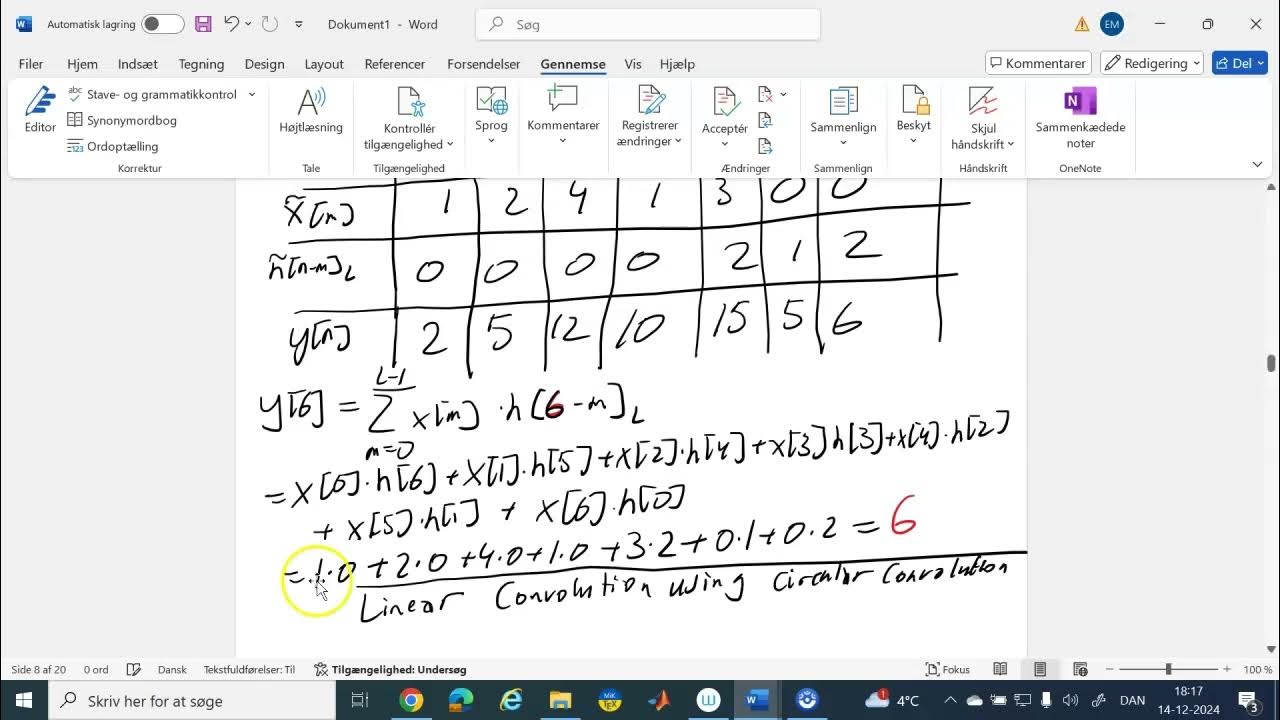 Automatisk lagring
Dokument1 - Word
Søg
EM
Filer Hjem Indsæt Tegning Design Layout Referencer Forsendelser Gennemse Vis Hjælp
Kommentarer Redigering Del
Editor
Stave- og grammatikkontrol
Synonymordbog
Ordoptælling
Korrektur
Højtlæsning
Tale
Kontrollér tilgængelighed
Tilgængelighed
Sprog
Kommentarer
Registrerer ændringer
Acceptér
Ændringer
Sammenlign
Sammenlign
Beskyt
Skjul håndskrift
Håndskrift
Sammenkædede noter
OneNote
x̃[n] 1 2 4 1 3 0 0
h̃[n-m]L 0 0 0 0 2 1 2
y[n] 2 5 12 10 15 5 6
L-1
y[6] = Σ x[m] · h[6-m]L
m=0
= x[0]·h[6] + x[1]·h[5] + x[2]·h[4] + x[3]h[3] + x[4]·h[2]
+ x[5]·h[1] + x[6]·h[0]
= 1·0 + 2·0 + 4·0 + 1·0 + 3·2 + 0·1 + 0·2 = 6
Linear Convolution using Circular Convolution
Side 8 af 20 0 ord Dansk Tekstfuldførelser: Til Tilgængelighed: Undersøg Fokus 100 %
Skriv her for at søge
4°C
DAN
18:17
14-12-2024